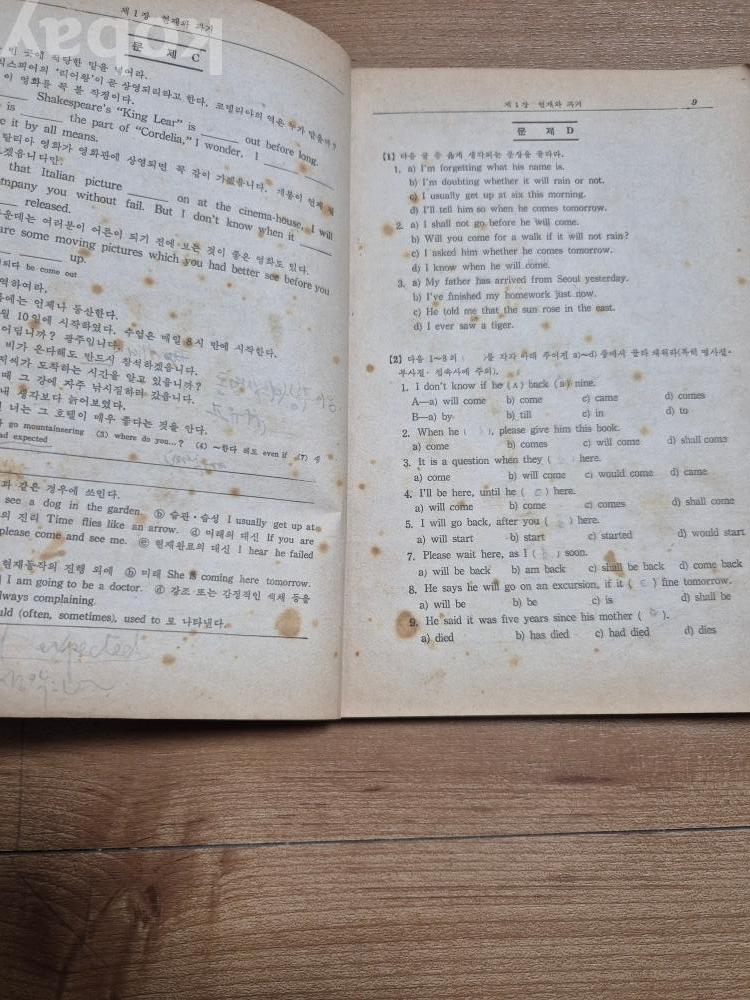 kobay
제 1 장 현재와 과거
문 제 C
빈 곳에 적당한 말을 넣어라.
스피어의 ‘리어왕’이 곧 상영되리라고 한다. 코델리아의 역은 누가 맡을까?
이 영화를 꼭 볼 작정이다.
Shakespeare's “King Lear” is ______ out before long.
is ______ the part of “Cordelia,” I wonder, I ______
e it by all means.
탈리아 영화가 영화관에 상영되면 꼭 같이 가겠읍니다. 개봉이 언제 될
겠읍니다만.
that Italian picture ______ on at the cinema-house, I will
mpany you without fail. But I don't know when it ______
______ released.
운데는 여러분이 어른이 되기 전에 보는 것이 좋은 영화도 있다.
are some moving pictures which you had better see before you
______ up.
되다 be come out
역하여라.
름에는 언제나 등산한다.
월 10일에 시작하였다. 수업은 매일 8시 반에 시작한다.
어딥니까? 광주입니다.
비가 온다해도 반드시 참석하겠읍니다.
저씨가 도착하는 시간을 알고 있읍니까?
때 그 강에 자주 낚시질하러 갔읍니다.
내 생각보다 늙어보였다.
번 너는 그 호텔이 매우 좋다는 것을 안다.
go mountaineering (3) where do you...? (4) ~한다 해도 even if (7)
ad expected
과 같은 경우에 쓰인다.
see a dog in the garden. ⓑ 습관·습성 I usually get up at
의 진리 Time flies like an arrow. ⓓ 미래의 대신 If you are
please come and see me. ⓔ 현재완료의 대신 I hear he failed
현재동작의 진행 외에 ⓑ 미래 She is coming here tomorrow.
I am going to be a doctor. ⓓ 강조 또는 감정적인 색채 등을
lways complaining.
uld (often, sometimes), used to 로 나타낸다.
expected
제 1 장 현재와 과거 9
문 제 D
[1] 다음 글 중 옳게 생각되는 문장을 골라라.
1. a) I'm forgetting what his name is.
b) I'm doubting whether it will rain or not.
c) I usually get up at six this morning.
d) I'll tell him so when he comes tomorrow.
2. a) I shall not go before he will come.
b) Will you come for a walk if it will not rain?
c) I asked him whether he comes tomorrow.
d) I know when he will come.
3. a) My father has arrived from Seoul yesterday.
b) I've finished my homework just now.
c) He told me that the sun rose in the east.
d) I ever saw a tiger.
[2] 다음 1~8의 ( )를 각각 아래 주어진 a)~d) 중에서 골라 채워라(특히 명사절·
부사절·접속사에 주의).
1. I don't know if he (A) back (B) nine.
A—a) will come b) come c) came d) comes
B—a) by b) till c) in d) to
2. When he ( ), please give him this book.
a) come b) comes c) will come d) shall come
3. It is a question when they ( ) here.
a) come b) will come c) would come d) came
4. I'll be here, until he ( c ) here.
a) will come b) come c) comes d) shall come
5. I will go back, after you ( ) here.
a) will start b) start c) started d) would start
7. Please wait here, as I ( ) soon.
a) will be back b) am back c) shall be back d) come back
8. He says he will go on an excursion, if it ( c ) fine tomorrow.
a) will be b) be c) is d) shall be
9. He said it was five years since his mother ( ).
a) died b) has died c) had died d) dies